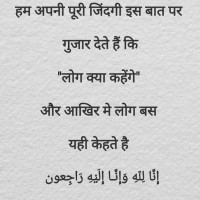 हम अपनी पूरी जिंदगी इस बात पर
गुजार देते हैं कि
"लोग क्या कहेंगे"
और आखिर मे लोग बस
यही केहते है
إِنَّا لِلّهِ وَإِنَّـا إِلَيْهِ رَاجِعون